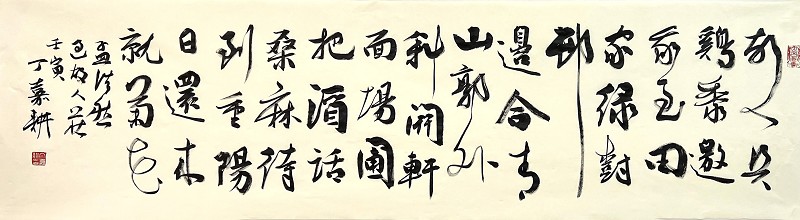 故人具
鷄黍邀
我至田
家绿樹
邨
邊合青
山郭外
斜開軒
面場圃
把酒話
桑麻待
到重陽
日還来
就菊花
孟浩然
過故人莊
壬寅
丁嘉耕